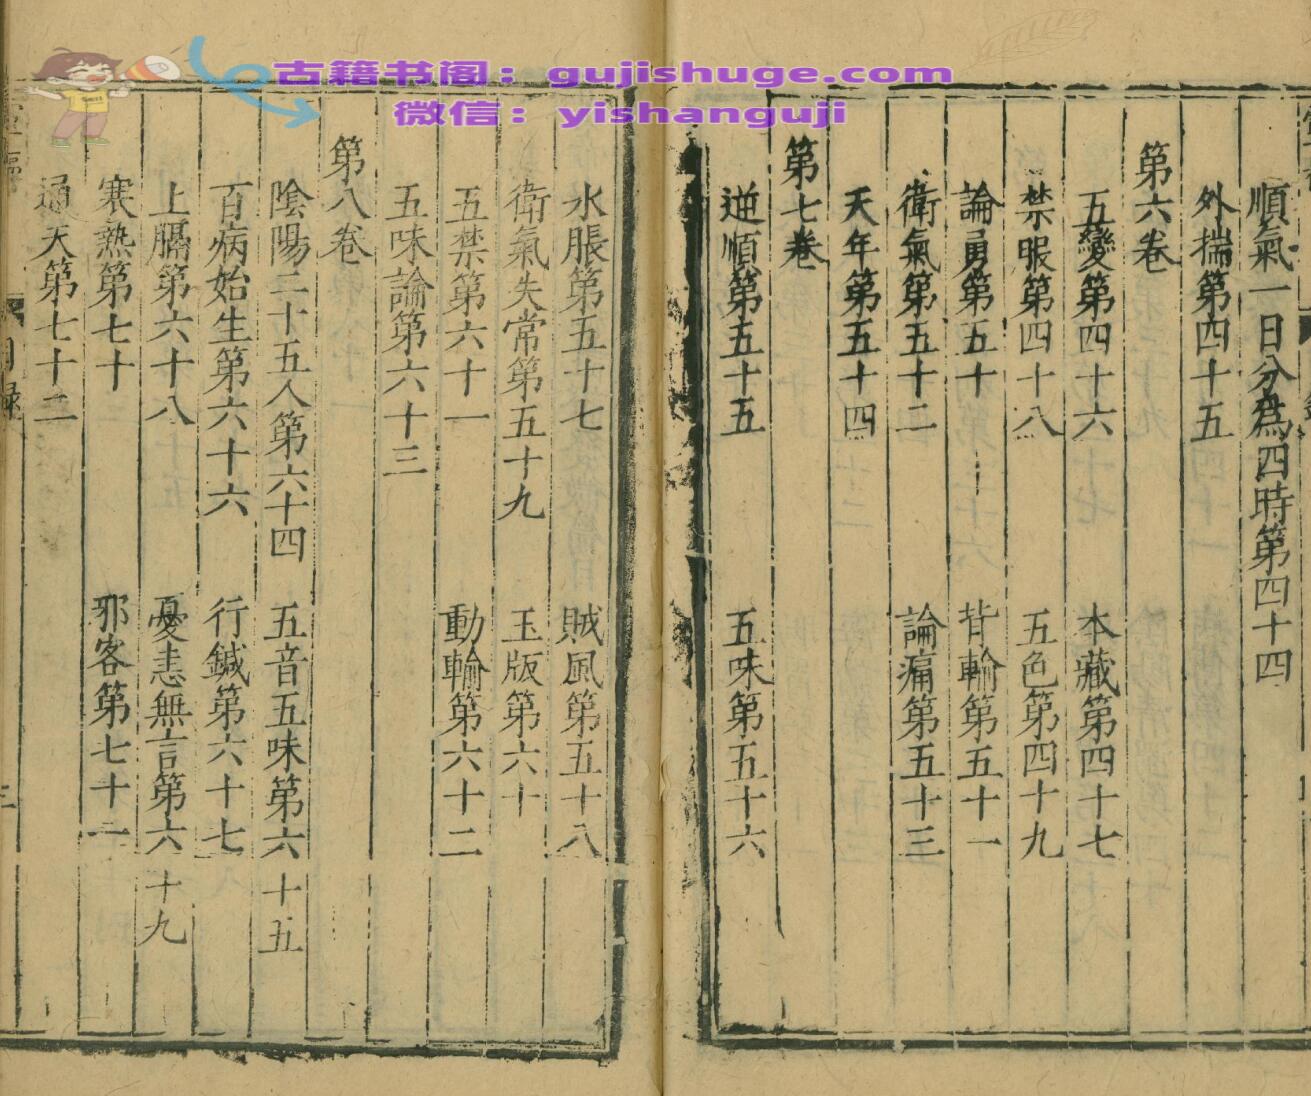 古籍书阁：gujishuge.com
微信：yishanguji
順氣一日分爲四時第四十四
外揣第四十五
第六卷
五變第四十六　本藏第四十七
禁服第四十八　五色第四十九
論勇第五十　背輸第五十一
衛氣第五十二　論痛第五十三
天年第五十四
第七卷
逆順第五十五　五味第五十六
水脹第五十七　賊風第五十八
衛氣失常第五十九　玉版第六十
五禁第六十一　動輸第六十二
五味論第六十三
第八卷
陰陽二十五人第六十四　五音五味第六十五
百病始生第六十六　行鍼第六十七
上膈第六十八　憂恚無言第六十九
寒熱第七十　邪客第七十一
通天第七十二
目錄